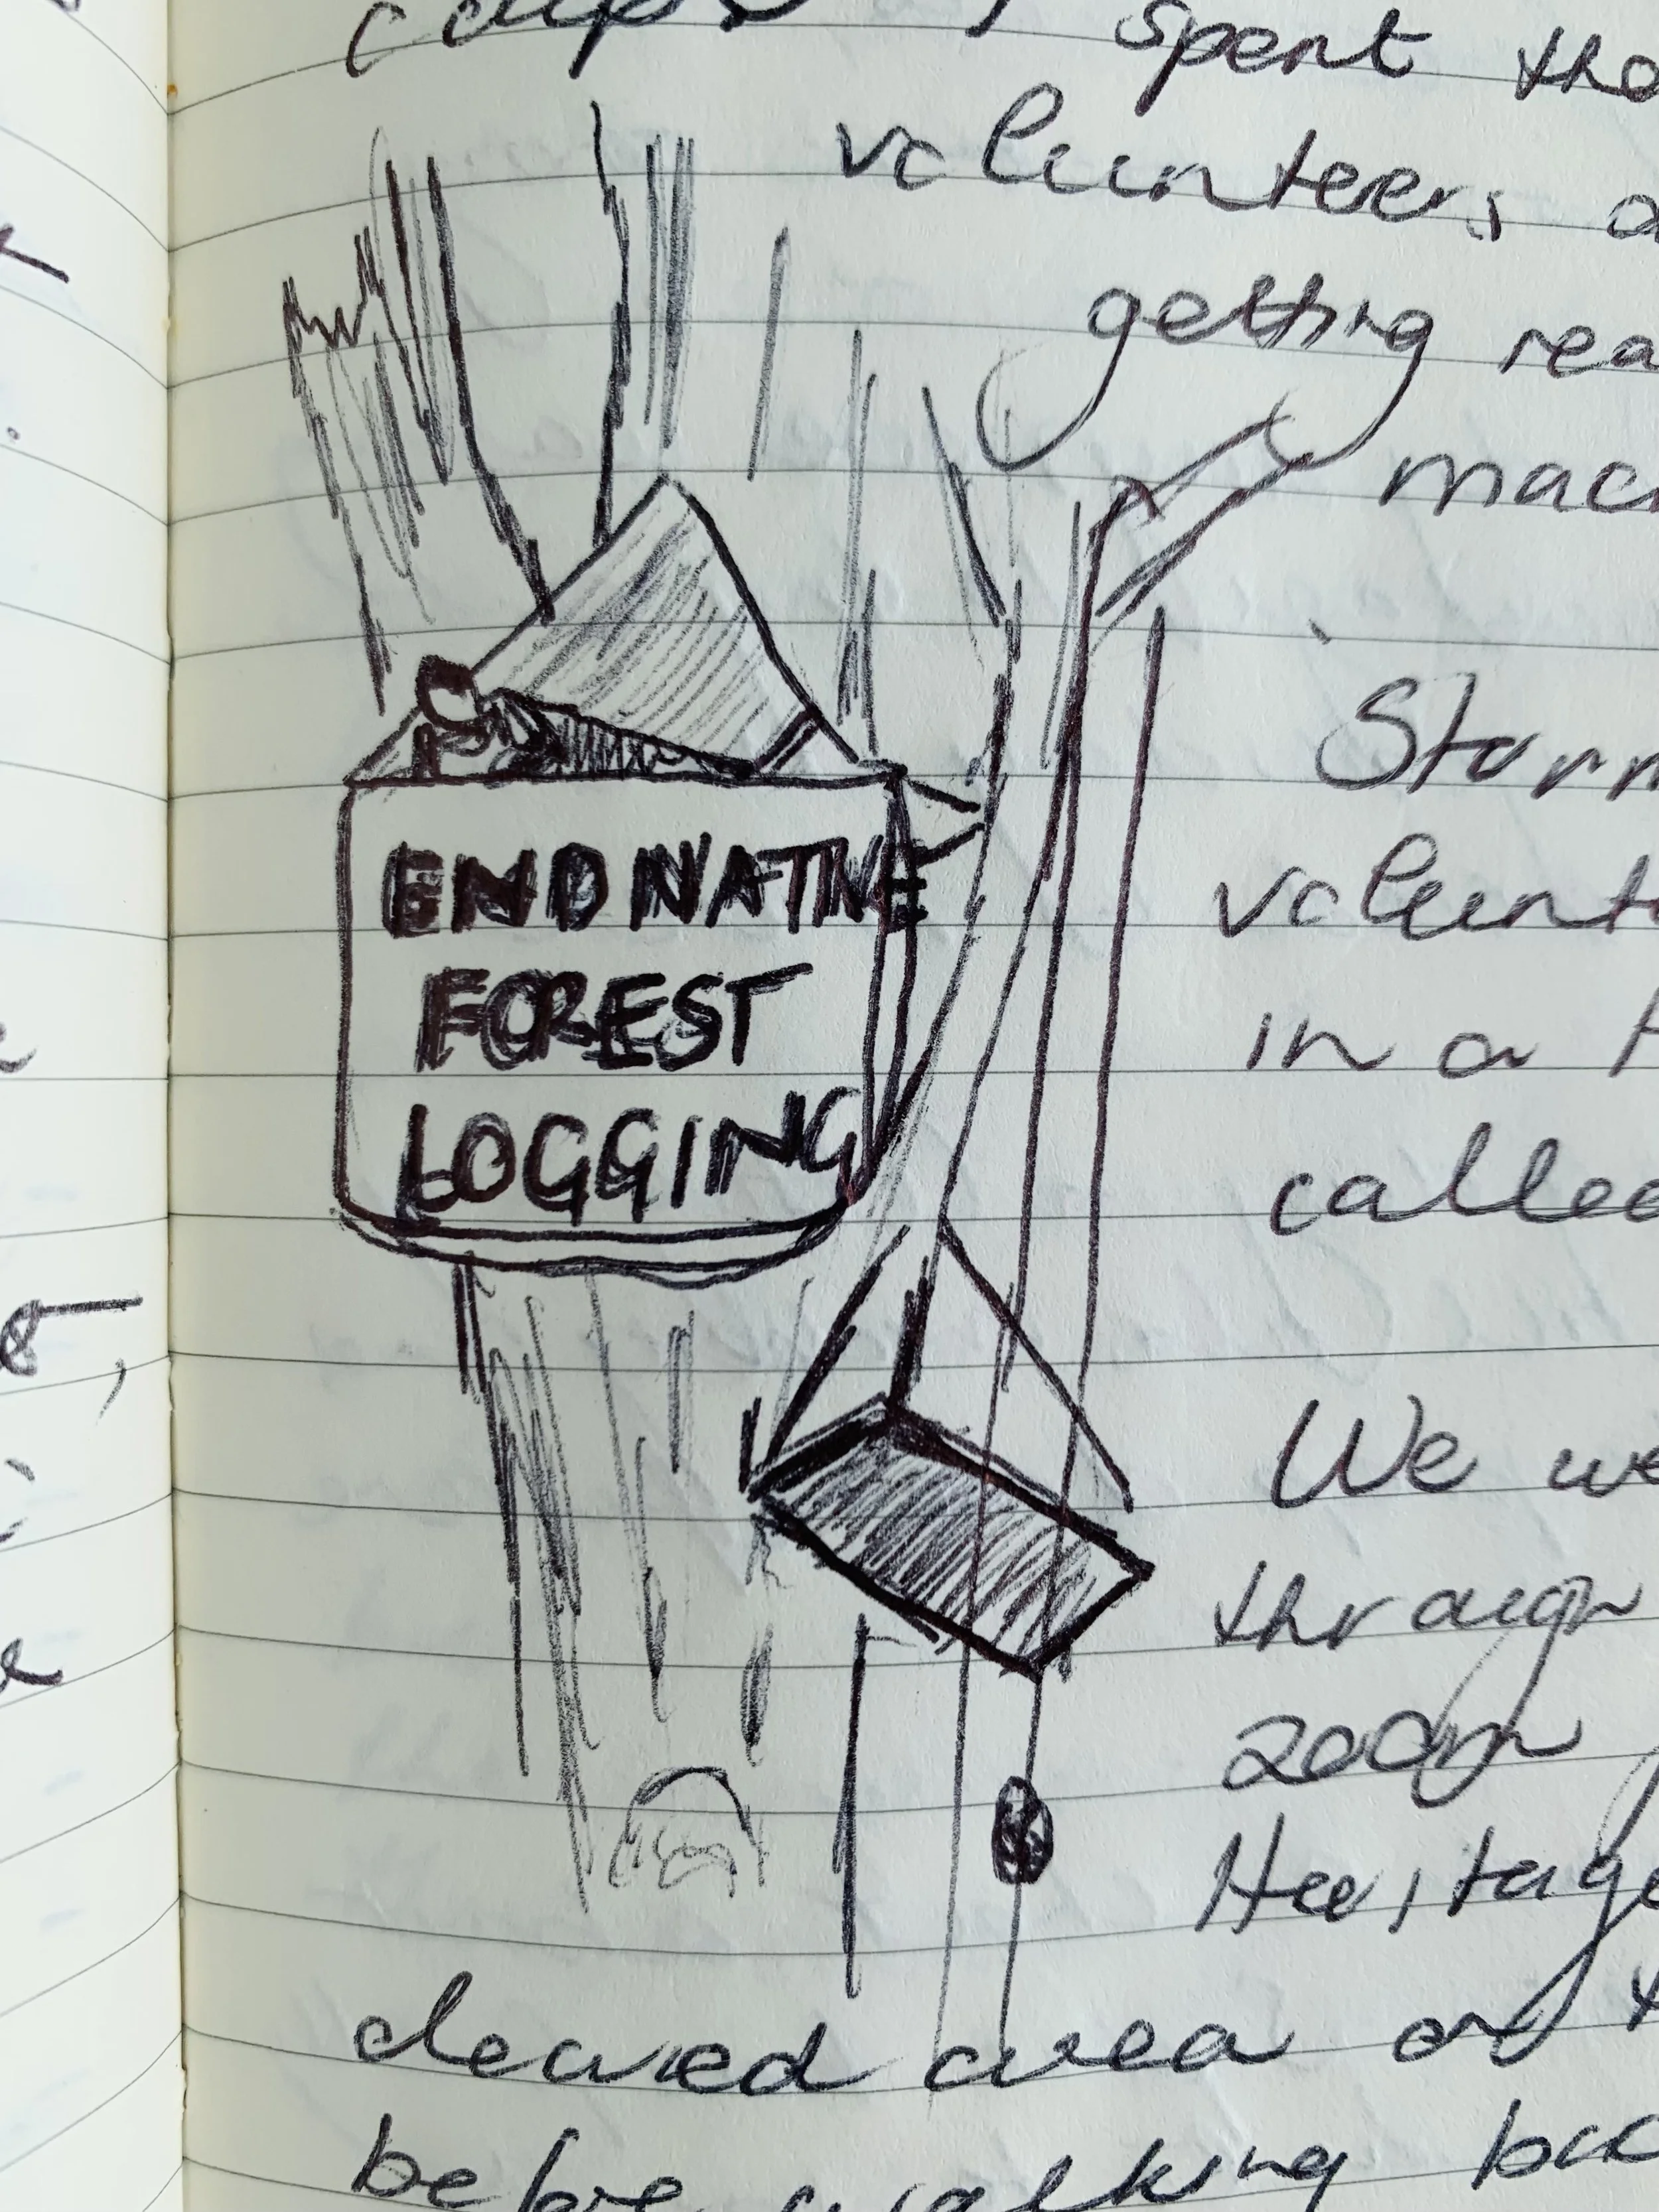 spent the
volunteers
getting rea
mac
END NATIVE
FOREST
LOGGING
Storm
volunte
in a
called
We we
through
200m
Heritage
cleared area on t
before walking bac